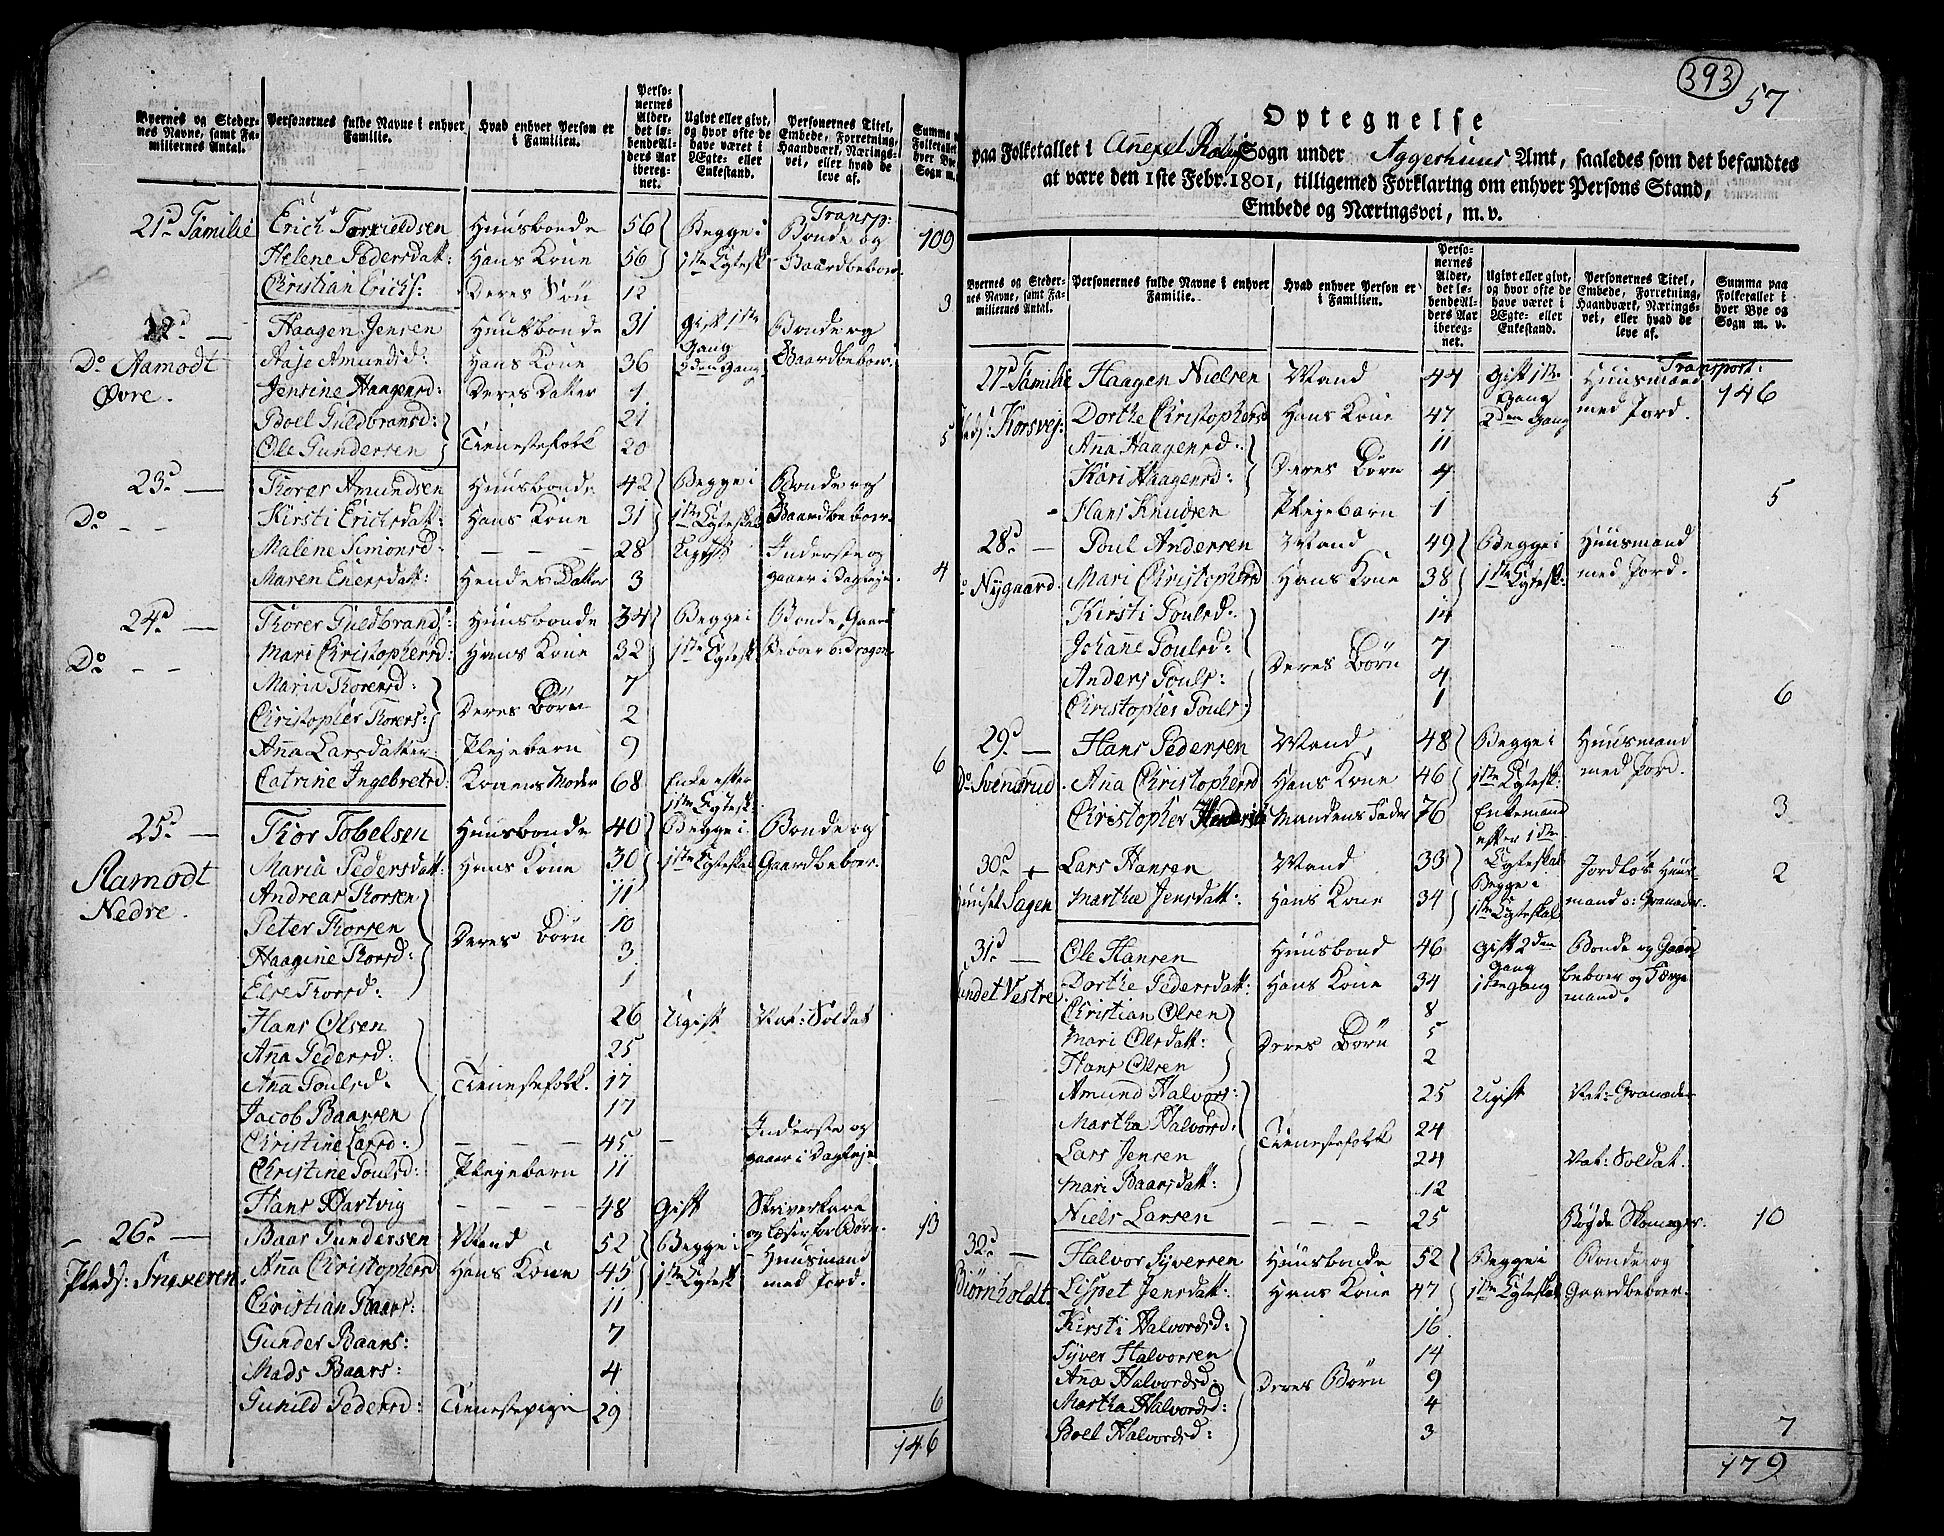 Byernes og Steder-
nes Navne, samt Fa-
miliernes Antal.
Personernes fulde Navne i enhver
Familie.
Hvad enhver Person er
i Familien.
Perso-
nernes
Alder,
det lø-
bende Al-
ders Aar
ibereg-
net.
Ugivt eller givt,
og hvor ofte de
have været i
Ægte- eller
Enkestand.
Personernes Titel,
Embede, Forretning,
Haandværk, Nærings-
vei, eller hvad de
leve af.
Summa
Folketallet
hver Bye
Sogn m.
Transp:
21d Familie Erich Torkieldsen Huusbonde 56 Begge i Bonde og 109
Helene Pedersdatt: Hans Kone 56 1ste Egtesk Gaardbeboer
Christian Erichs: Deres Søn 12 3
22d — Haagen Jensen Huusbonde 31 Gift 1ste Gang Bonde og
Do Aamodt Aase Amundsd: Hans Kone 36 2den Gang Gaardbeboer.
Øvre. Jensine Haagensd: Deres Datter 1
Boel Guldbransd: 21
Ole Gundersen Tienestefolk 20 5
23d — Thorer Amundsen Huusbonde 42 Begge i Bonde og
Do — — Kirsti Erichsdatt: Hans Kone 31 1ste Egteskab Gaardbeboer
Malene Simonsd: — — — 28 Ugift Inderste og
Maren Enersdatt: Hendes Datter 3 gaaer i Dagleje. 4
24d — Thorer Guldbrands: Huusbonde 34 Begge i Bonde, Gaard
Do — — Mari Christophersd: Hans Kone 32 1ste Egtesk: Beboer o: Dragon
Maria Thorersd: 7
Christopher Thorers: Deres Børn 2
Anna Larsdatter Plejebarn 9
Catrine Ingebretsd Konens Moder 68 Enke efter 1ste Egtesk: 6
25d — Thor Tobelsen Huusbonde 40 Begge i Bonde og
Aamodt Maria Pedersdatt: Hans Kone 30 1ste Egteskab Gaardbeboer.
Nedre. Andreas Thorsen 11
Peter Thorsen 10
Haagine Thorsd: Deres Børn 3
Else Thorsd: 1
Hans Olsen 26 Ugift Nat: Soldat
Anna Pedersd: 25
Anna Poulsd: Tienestefolk. 17
Jacob Baarsen 17
Christine Larsd: — — — 45 — Inderste og
gaaer i Dagleje
Christine Poulsd: Plejebarn 11
Hans Hartvig — — — 48 Gift Skriverkarl
og Læser for Børn. 13
26d — Baar Gundersen Mand 52 Begge i Huusmand
Plads: Snekeren. Anna Christophersd Hans Kone 45 1ste Egtesk med Jord.
Christian Baars: 11
Gunder Baars: 7
Mads Baars: 4
Gunild Pedersd: Tienestepige 29 6
146
393
57
Optegnelse
paa Folketallet i Anexet Sogn under Aggerhuus Amt, saaledes som det befandtes
at være den 1ste Febr. 1801, tilligemed Forklaring om enhver Persons Stand,
Embede og Næringsvei, m. v.
Byernes og Steder-
nes Navne, samt Fa-
miliernes Antal.
Personernes fulde Navne i enhver
Familie.
Hvad enhver Person er
i Familien.
Perso-
nernes
Alder,
det lø-
bende Al-
ders Aar
ibereg-
net.
Ugivt eller givt,
og hvor ofte de
have været i
Ægte- eller
Enkestand.
Personernes Titel,
Embede, Forretning,
Haandværk, Nærings-
vei, eller hvad de
leve af.
Summa paa
Folketallet i
hver Bye og
Sogn m. v.
Transport:
27d Familie Haagen Nielsen Mand 44 Gift 1ste Gang Huusmand 146
Plads: Korsvej: Dorthe Christophersd Hans Kone 47 2den Gang med Jord.
Anna Haagensd: 11
Kari Haagensd: Deres Børn 4
Hans Knudsen Plejebarn 1 5
28d — Poul Andersen Mand 49 Begge i Huusmand
do Nygaard. Mari Christophersd Hans Kone 38 1ste Egtesk: med Jord.
Kirsti Poulsd: 14
Johanne Poulsd: 7
Anders Pouls: Deres Børn 4
Christopher Pouls: 1 6
29d — Hans Pedersen Mand 48 Begge i Huusmand
Do Svendrud. Anna Christophersd Hans Kone 46 1ste Egtesk: med Jord.
Christopher Mandens Fader 76 Enkemand
efter 1ste
Egteskab 3
30d — Lars Hansen Mand 33 Begge i Jordløs Huus-
Huuset Sagen Martha Jensdatt: Hans Kone 34 1ste Egteskab mand o: Granader. 2
31d — Ole Hansen Huusbond 46 Gift 2den Gang Bonde og Gaard
Sundet Vestre. Dorthe Pedersdatt: Hans Kone 34 1ste gang beboer og Færge
mand.
Christian Olsen 8
Mari Olsdatt: Deres Børn 5
Hans Olsen 2
Amund Halvors: 25 Ugift Nat: Granader
Martha Halvorsd: Tienestefolk 24
Lars Jensen 24 Nat: Soldat.
Mari Baarsdatt: 12
Niels Larsen — — — 25 Bøyde Skomager. 10
32d — Halvor Syversen Huusbonde 52 Begge i Bonde og
Biørnholdt. Lispet Jensdatt: Hans Kone 47 1ste Egteskab Gaardbeboer.
Kirsti Halvordsd: 16
Syver Halvorsen 14
Anna Halvordsd: Deres Børn 9
Martha Halvordsd: 4
Boel Halvordsd: 3 7
179